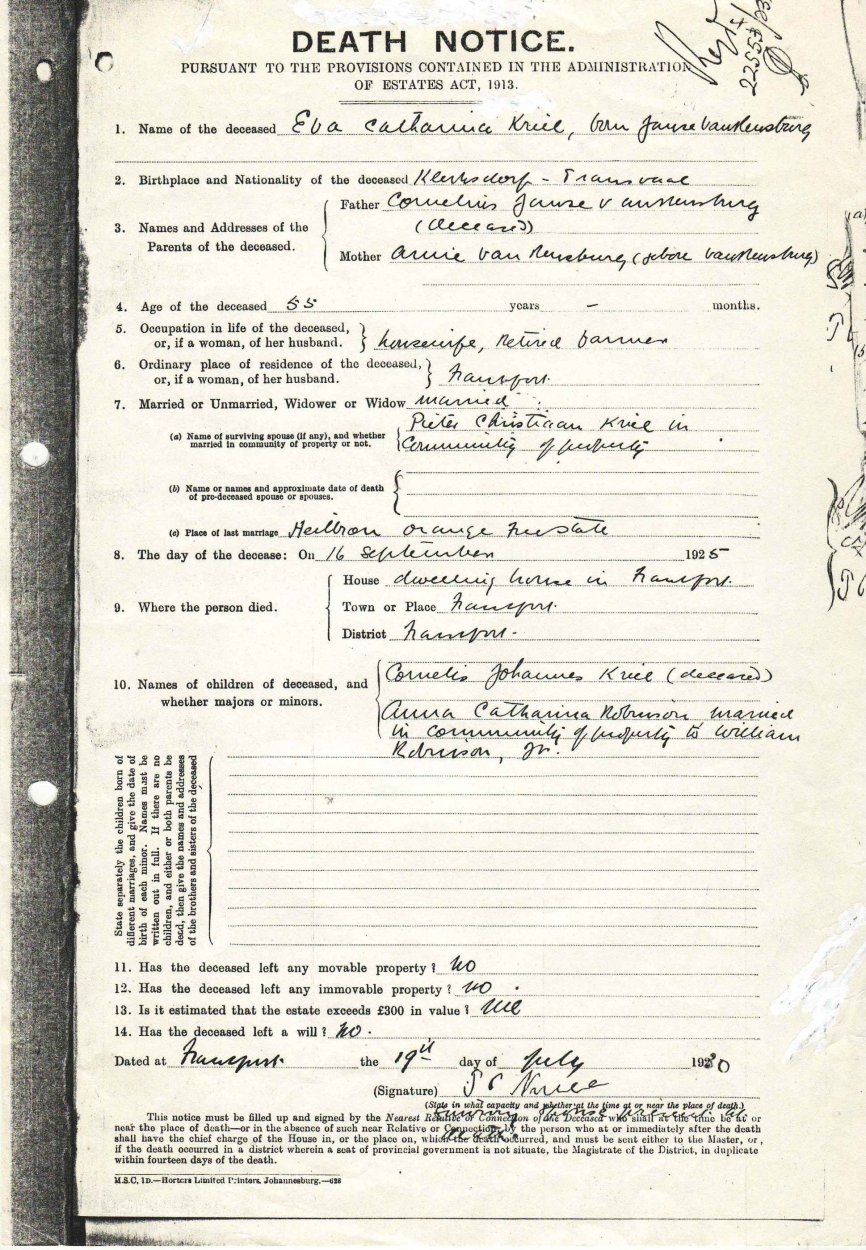 DEATH NOTICE.
22553/
PURSUANT TO THE PROVISIONS CONTAINED IN THE ADMINISTRATION
OF ESTATES ACT, 1913.
1. Name of the deceased Eva Catharina Kriel, born Janse Van Rensburg
2. Birthplace and Nationality of the deceased Klerksdorp - Transvaal
3. Names and Addresses of the Parents of the deceased.
Father Cornelius Janse v ansRensburg
(deceased)
Mother Annie Van Rensburg (gebore Van Rensburg)
4. Age of the deceased 55 years - months.
5. Occupation in life of the deceased,
or, if a woman, of her husband. housewife, Retired Farmer
6. Ordinary place of residence of the deceased,
or, if a woman, of her husband.
7. Married or Unmarried, Widower or Widow married
(a) Name of surviving spouse (if any), and whether
married in community of property or not.
Pieter Christiaan Kriel in
Community of property
(b) Name or names and approximate date of death
of pre-deceased spouse or spouses.
(c) Place of last marriage Heilbron Orange Free State
8. The day of the decease: On 16 September 1925
9. Where the person died.
House dwelling house in
Town or Place
District
10. Names of children of deceased, and
whether majors or minors.
Cornelis Johannes Kriel (deceased)
Anna Catharina Robinson, married
in community of property to William
Robinson, Jr.
State separately the children born of
different marriages, and give the date of
birth of each minor. Names must be
written out in full. If there are no
children, and either or both parents be
dead, then give the names and addresses
of the brothers and sisters of the deceased
11. Has the deceased left any movable property? No
12. Has the deceased left any immovable property? No.
13. Is it estimated that the estate exceeds £300 in value?
14. Has the deceased left a will? No.
Dated at the 19th day of July 1930
(Signature)
(State in what capacity and whether at the time at or near the place of death.)
This notice must be filled up and signed by the Nearest Relative or Connection of the Deceased who shall at the time be at or
near the place of death—or in the absence of such near Relative or Connection by the person who at or immediately after the death
shall have the chief charge of the House in, or the place on, which the death occurred, and must be sent either to the Master, or,
if the death occurred in a district wherein a seat of provincial government is not situate, the Magistrate of the District, in duplicate
within fourteen days of the death.
M.S.C. 1D.—Horters Limited Printers, Johannesburg.—628